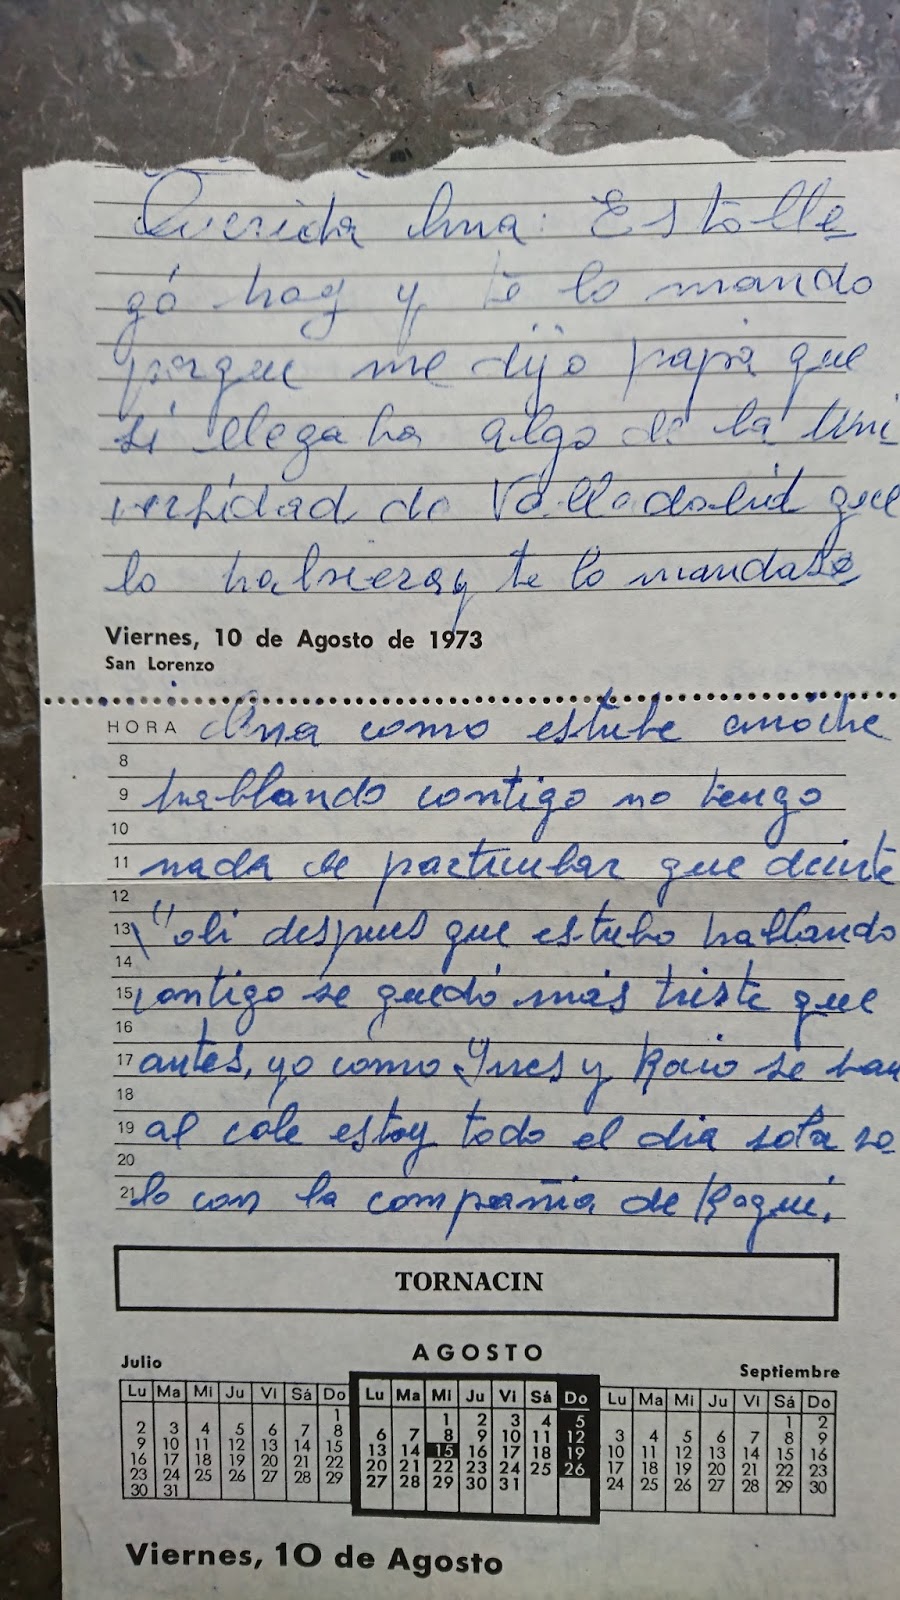 Querida Ana: Esto lle
gó hoy y te lo mando
porque me dijo papá que
si llegaba algo de la Uni
versidad de Valladolid que
lo habriera y te lo mandase
Viernes, 10 de Agosto de 1973
San Lorenzo
HORA Ana como estube anoche
8
9 hablando contigo no tengo
10
11 nada de particular que decirte
12
13 Yoli despues que estubo hablando
14
15 contigo se quedó más triste que
16
17 antes, yo como Ynes y Rocio se van
18
19 al cole estoy todo el dia sola so
20
21 lo con la compañia de Raqui.
TORNACIN
Julio AGOSTO Septiembre
Lu Ma Mi Ju Vi Sá Do Lu Ma Mi Ju Vi Sá Do Lu Ma Mi Ju Vi Sá Do
1 1 2 3 4 5 1 2
2 3 4 5 6 7 8 6 7 8 9 10 11 12 3 4 5 6 7 8 9
9 10 11 12 13 14 15 13 14 15 16 17 18 19 10 11 12 13 14 15 16
16 17 18 19 20 21 22 20 21 22 23 24 25 26 17 18 19 20 21 22 23
23 24 25 26 27 28 29 27 28 29 30 31 24 25 26 27 28 29 30
30 31
Viernes, 10 de Agosto